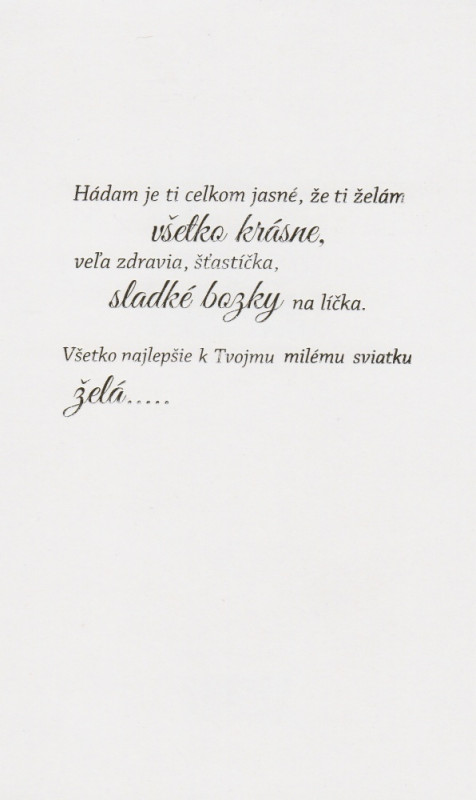 Hádam je ti celkom jasné, že ti želám
všetko krásne,
veľa zdravia, šťastíčka,
sladké bozky na líčka.
Všetko najlepšie k Tvojmu milému sviatku
želá.....